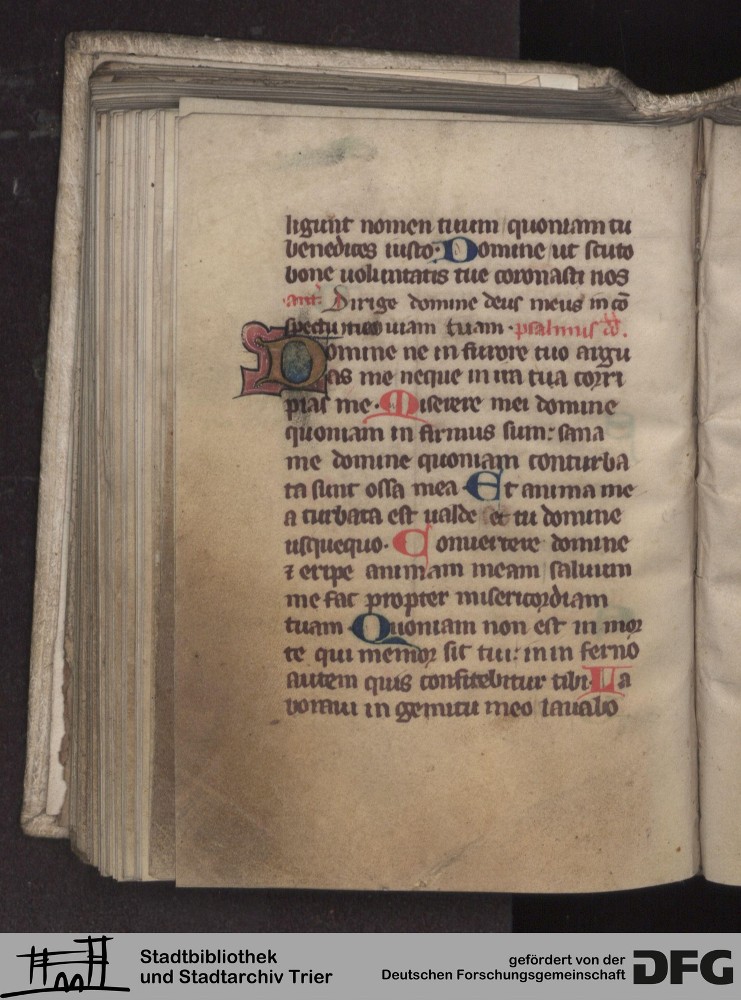 ligunt nomen tuum quoniam tu
benedices iusto. Domine ut scuto
bone uoluntatis tue coronasti nos
ant. Dirige domine deus meus in cō
spectu meo uiam tuam. psalmus dd.
Domine ne in furore tuo argu
as me neque in ira tua corri
pias me. Miserere mei domine
quoniam in firmus sum: sana
me domine quoniam conturba
ta sunt ossa mea Et anima me
a turbata est ualde et tu domine
usquequo. Conuertere domine
⁊ eripe animam meam saluum
me fac propter misericordiam
tuam Quoniam non est in mor
te qui memor sit tui: in in ferno
autem quis confitebitur tibi. La
boraui in gemitu meo lauabo
Stadtbibliothek
und Stadtarchiv Trier
gefördert von der
Deutschen Forschungsgemeinschaft
DFG